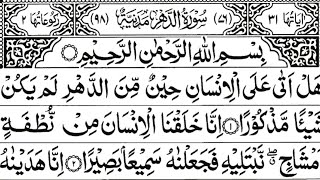 اٰیاتها ۳۱ (۷۶) سُوْرَةُ الدَّهْرِ مَدَنِيَّةٌ (۹۸) رکوعاتها ۲
بِسْمِ اللّٰهِ الرَّحْمٰنِ الرَّحِيْمِ
هَلْ اَتٰى عَلَى الْاِنْسَانِ حِيْنٌ مِّنَ الدَّهْرِ لَمْ يَكُنْ
شَيْـًٔا مَّذْكُوْرًا ۝۱ اِنَّا خَلَقْنَا الْاِنْسَانَ مِنْ نُّطْفَةٍ
اَمْشَاجٍ ۖ نَّبْتَلِيْهِ فَجَعَلْنٰهُ سَمِيْعًۢا بَصِيْرًا ۝۲ اِنَّا هَدَيْنٰهُ